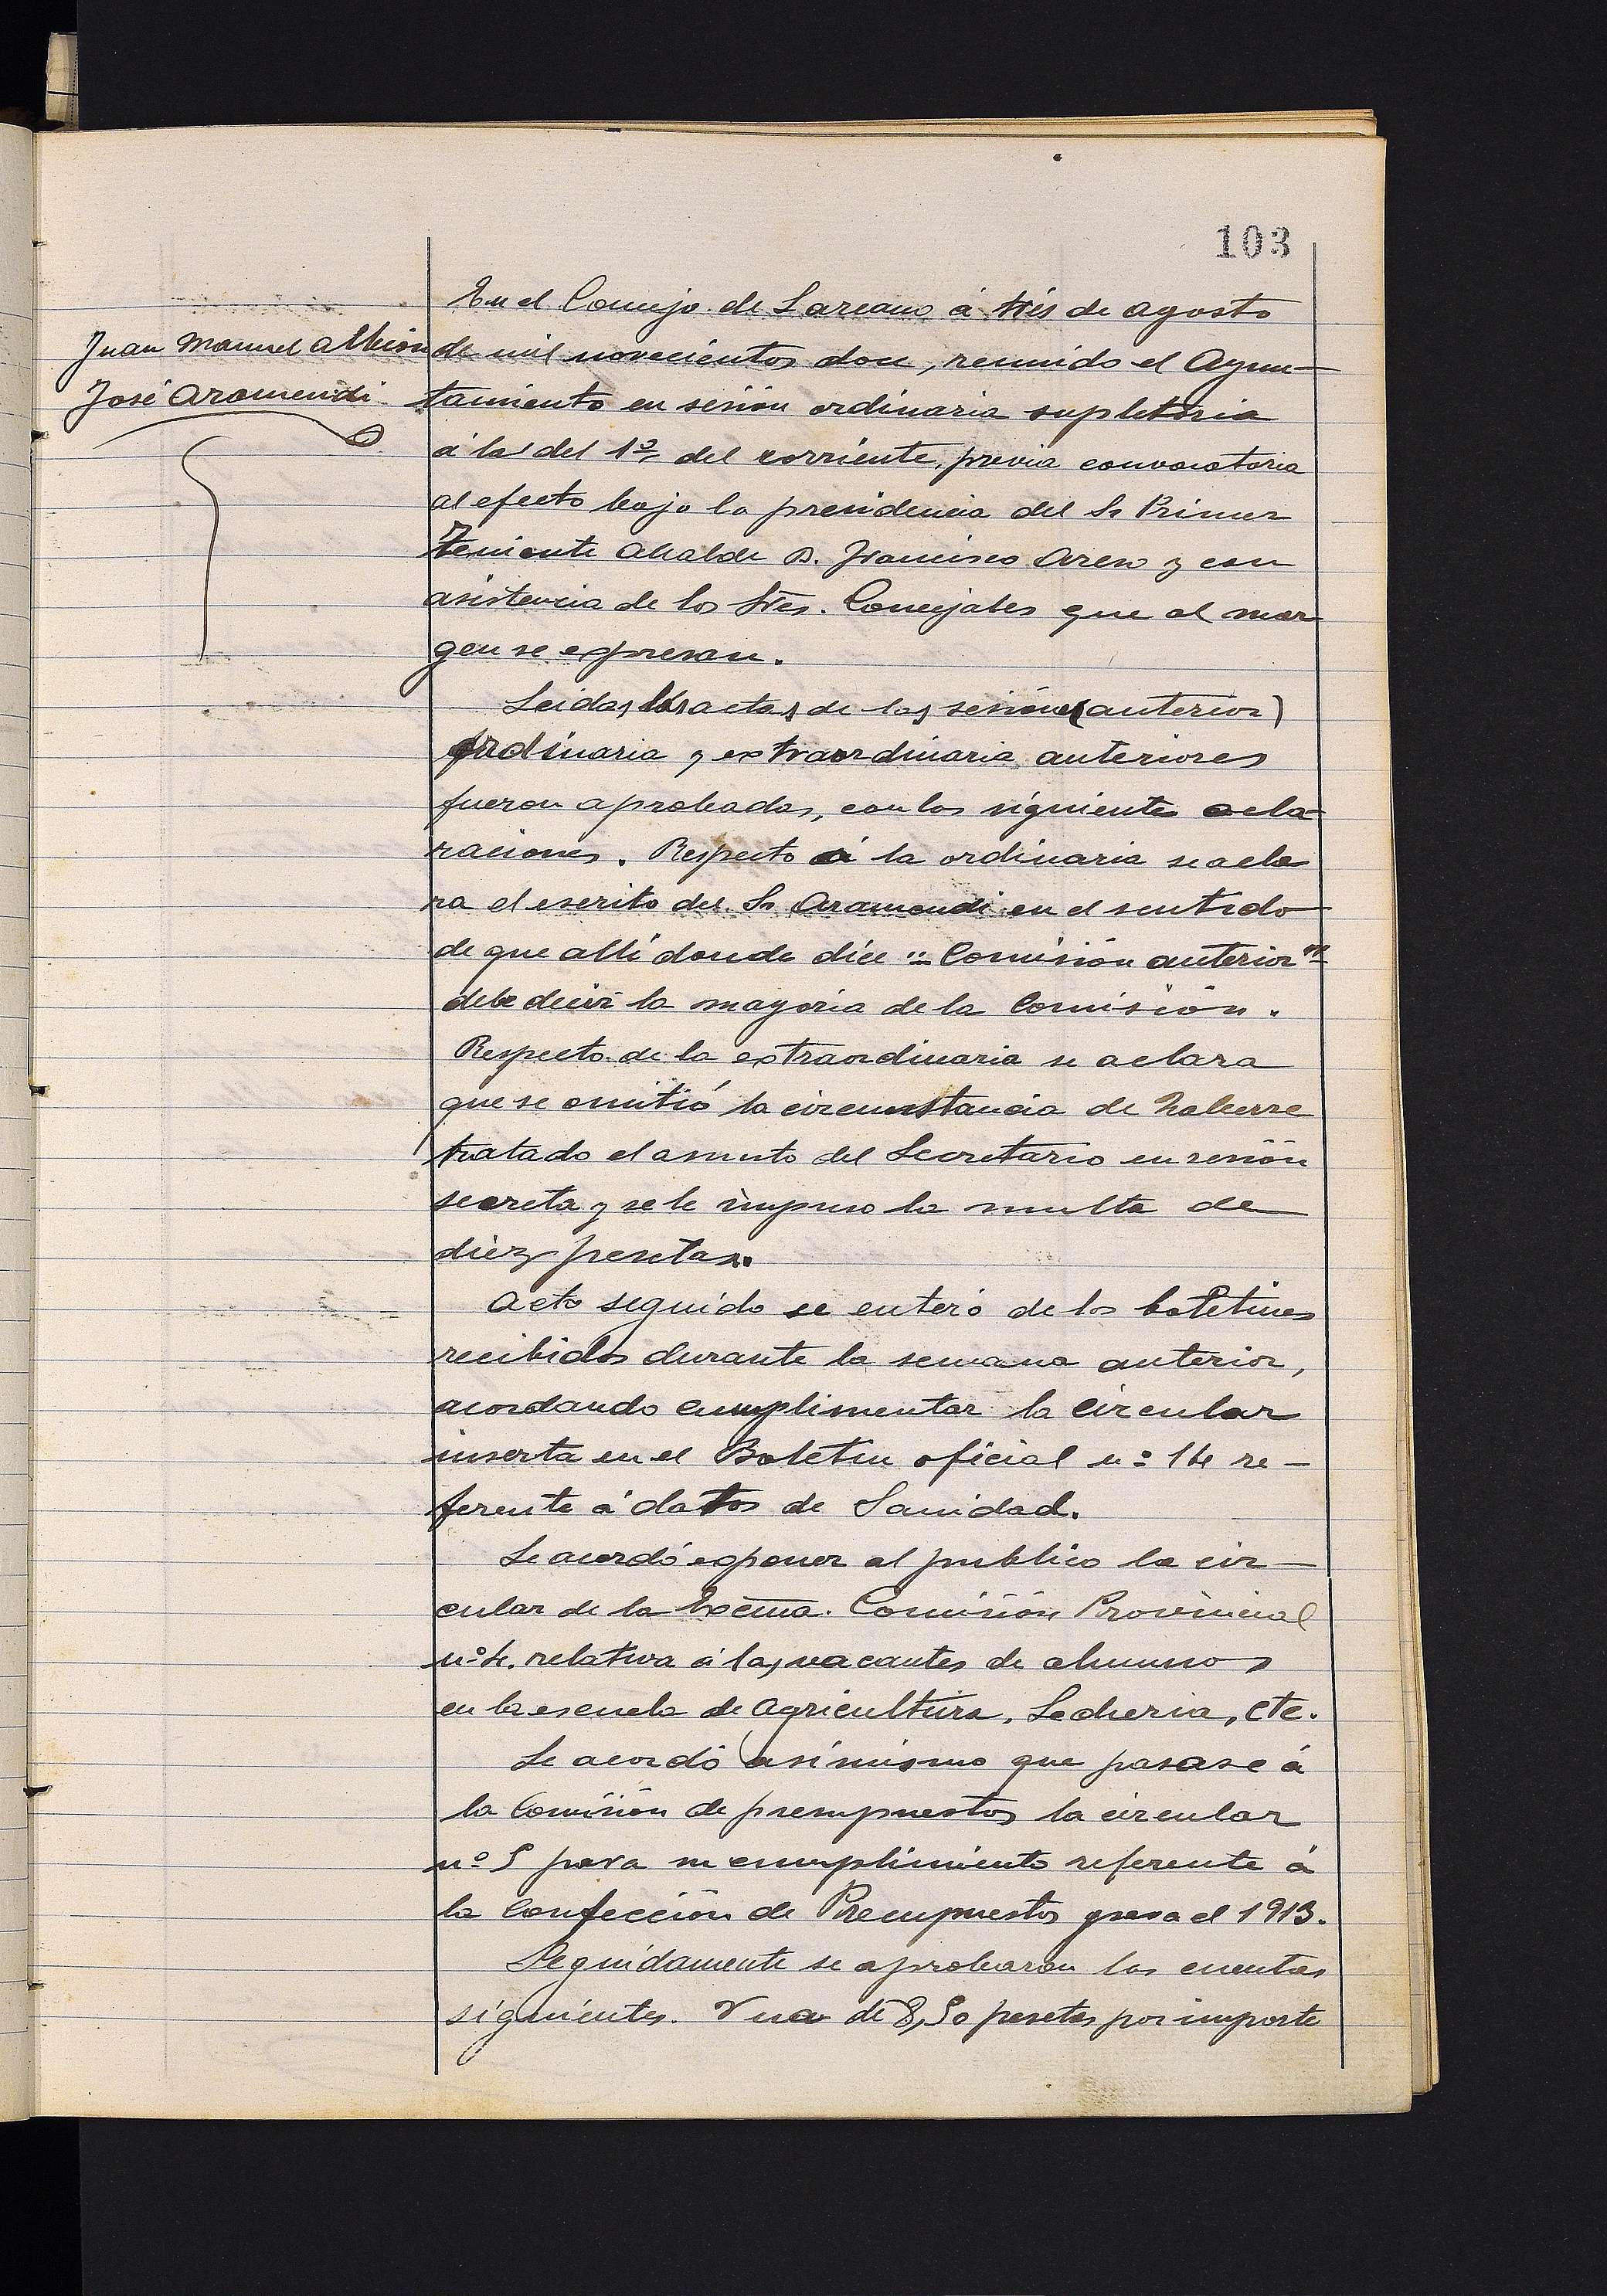 103
Juan Manuel Albisu
José Aramendi
En el Concejo de Lazcano á tres de agosto
de mil novecientos doce, reunido el Ayun-
tamiento en sesión ordinaria supletoria
á la del 1º del corriente, previa convocatoria
al efecto bajo la presidencia del Sr Primer
Teniente Alcalde D. Francisco y con
asistencia de los Sres. Concejales que al mar
gen se expresan.
Leidas las actas de las sesiones (anterior)
ordinaria y extraordinaria anteriores
fueron aprobadas, con las siguientes acla-
raciones. Respecto á la ordinaria se acla
ra el escrito del Sr Aramendi en el sentido
de que allí donde dice "Comisión anterior"
debe decir la mayoria de la Comisión.
Respecto de la extraordinaria se aclara
que se omitió la circunstancia de haberse
tratado el asunto del Secretario en sesión
secreta y se le impuso la multa de
diez pesetas.
Acto seguido se enteró de los boletines
recibidos durante la semana anterior,
acordando cumplimentar la circular
inserta en el Boletin oficial nº 14 re-
ferente á datos de Sanidad.
Se acordó exponer al publico la cir-
cular de la Excma. Comisión Provincial
nº 4. relativa á las vacantes de alumnos
en la escuela de Agricultura, Lecheria, etc.
Se acordó asimismo que pasase á
la Comisión de presupuestos la circular
nº 5 para su cumplimiento referente á
la Confección de Presupuestos para el 1913.
Seguidamente se aprobaron las cuentas
siguientes. Una de 8,50 pesetas por importe